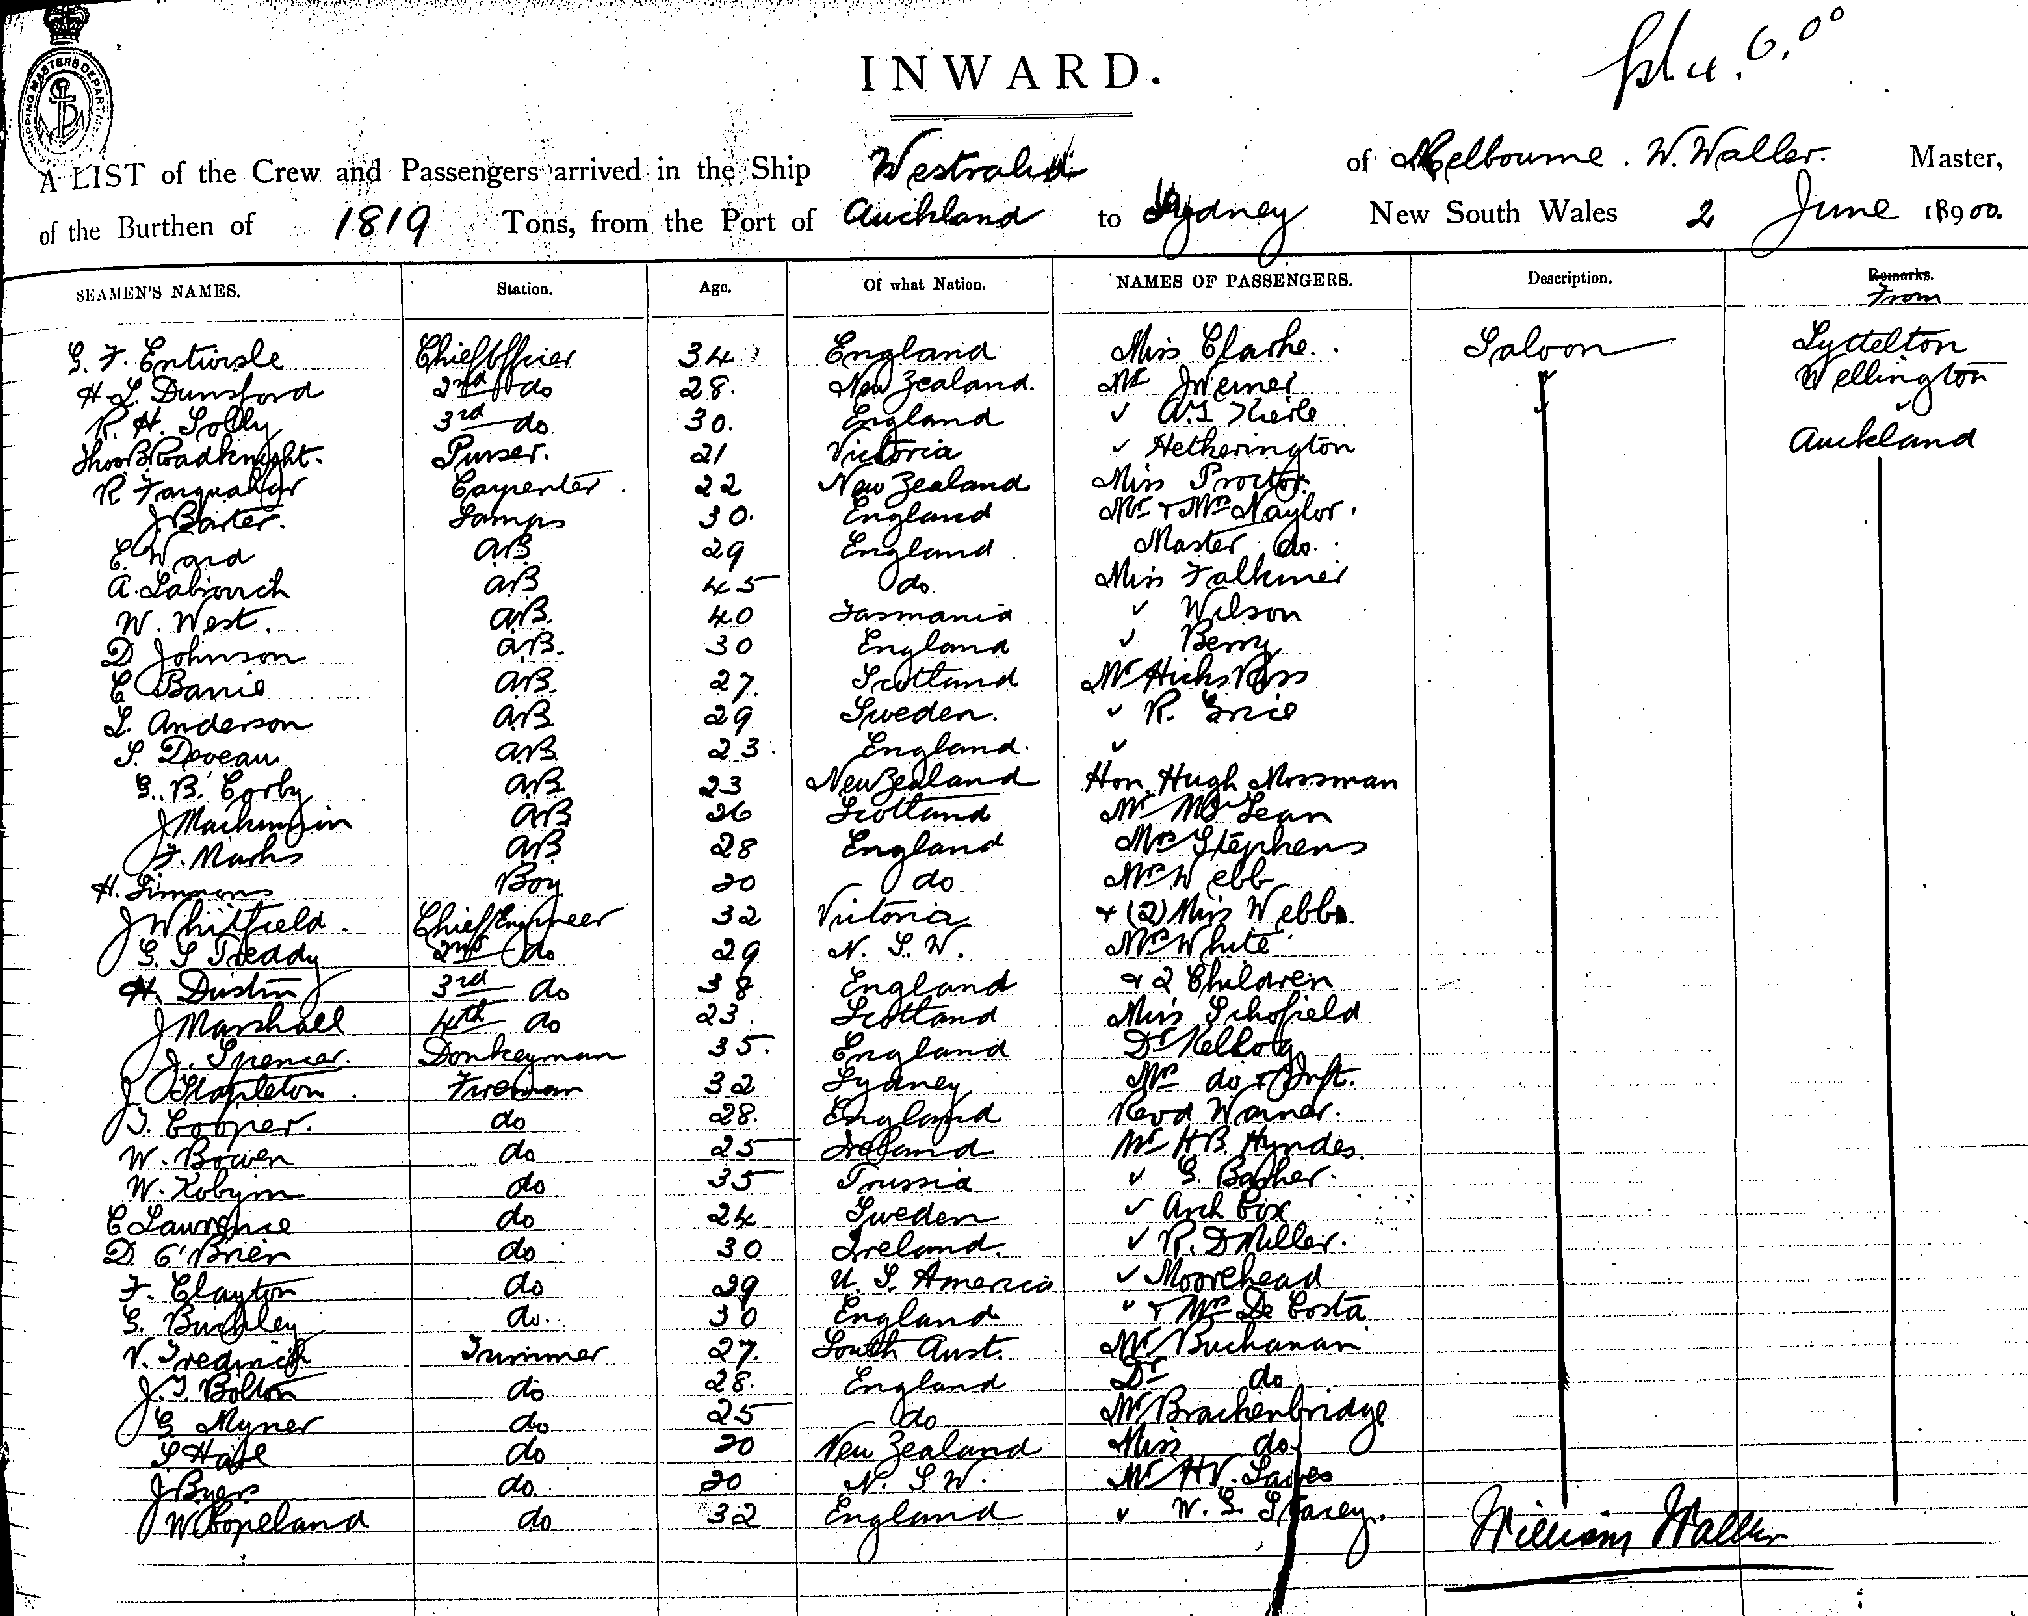 INWARD.
A LIST of the Crew and Passengers arrived in the Ship Westralia of Melbourne. W. Waller. Master,
of the Burthen of 1819 Tons, from the Port of Auckland to Sydney New South Wales 2 June 18900.
SEAMEN'S NAMES. Station. Age. Of what Nation. NAMES OF PASSENGERS. Description. Remarks.
From
G. F. Entwisle Chief Officer 34 England Miss Clarke. Saloon Lyttelton
H. L. Dunsford 2nd do 28. New Zealand. Mr Weiner Wellington
R. H. Solly 3rd do 30. England ✓ Kerle
Thos Broadknight. Purser. 21 Victoria ✓ Hetherington Auckland
R Farquahar Carpenter. 22 New Zealand Miss Proctor.
J Barter. Lamps 30. England Mr & Mrs Naylor.
E. Ward AB 29 England Master do.
A. AB 45 do. Miss Falkiner
W. West. AB. 40 Tasmania ✓ Wilson
D Johnson AB. 30 England ✓ Berry
C Barrie AB. 27. Scotland Mr Hicks Ross
L. Anderson AB 29 Sweden. ✓ R. Grice
S. Deveau AB. 23. England. ✓
G. B. Corby AB. 23 New Zealand Hon. Hugh Mossman
J AB 26 Scotland Mr McLean
F. Marks AB 28 England Mrs Stephens
H. Simmons Boy 20 do Mrs Webb
J Whitfield. Chief Engineer 32 Victoria & (2) Miss Webbs.
G. S Treddy 2nd do 29 N. S. W. Mrs White
H. Dustin 3rd do 38 England & 2 Children
J Marshall 4th do 23. Scotland Miss Schofield
J. Spencer. Donkeyman 35. England Dr Kellog
J Stapleton. Fireman 32 Sydney Mrs do & Inft.
T. Cooper. do 28. England Revd Warner.
W. Bowen do 25 Ireland Mr H B Hyndes.
W. do 35 Prussia ✓ G. Barker.
C Lawrence do 24 Sweden ✓ Arch Cox
D O'Brien do 30 Ireland. ✓ R. D Miller.
F. Clayton do 29 U. S. America ✓ Moorehead
G. Buckley do. 30 England " & Mrs De Costa
V. Fredrich Trimmer 27. South Aust. Mr Buchanan
J. T. Bolton do 28. England Dr do
G Myner do 25 do Mr Brackenbridge
S Hall do 20 New Zealand Miss do
J Byers do. 20 N. S W. Mr H V.
W Copeland do 32 England ✓ W. G. Stacey.
William Waller